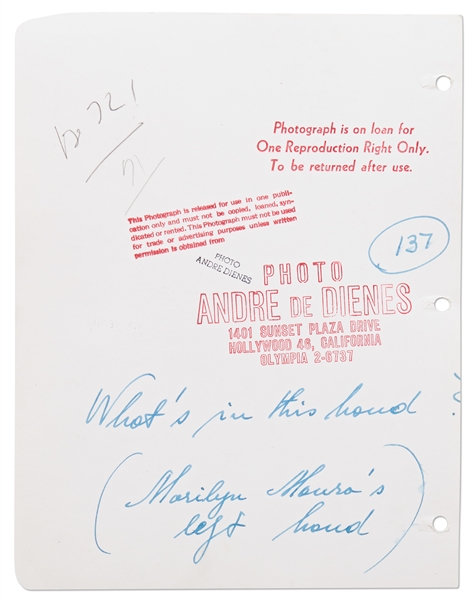 Photograph is on loan for
One Reproduction Right Only.
To be returned after use.
This Photograph is released for use in one publi-
cation only and must not be copied, loaned, syn-
dicated or rented. This Photograph must not be used
for trade or advertising purposes unless written
permission is obtained from
PHOTO
ANDRE DIENES
137
PHOTO
ANDRE DE DIENES
1401 SUNSET PLAZA DRIVE
HOLLYWOOD 46, CALIFORNIA
OLYMPIA 2-6737
What's in this hand ?
(Marilyn Monro's
left hand)